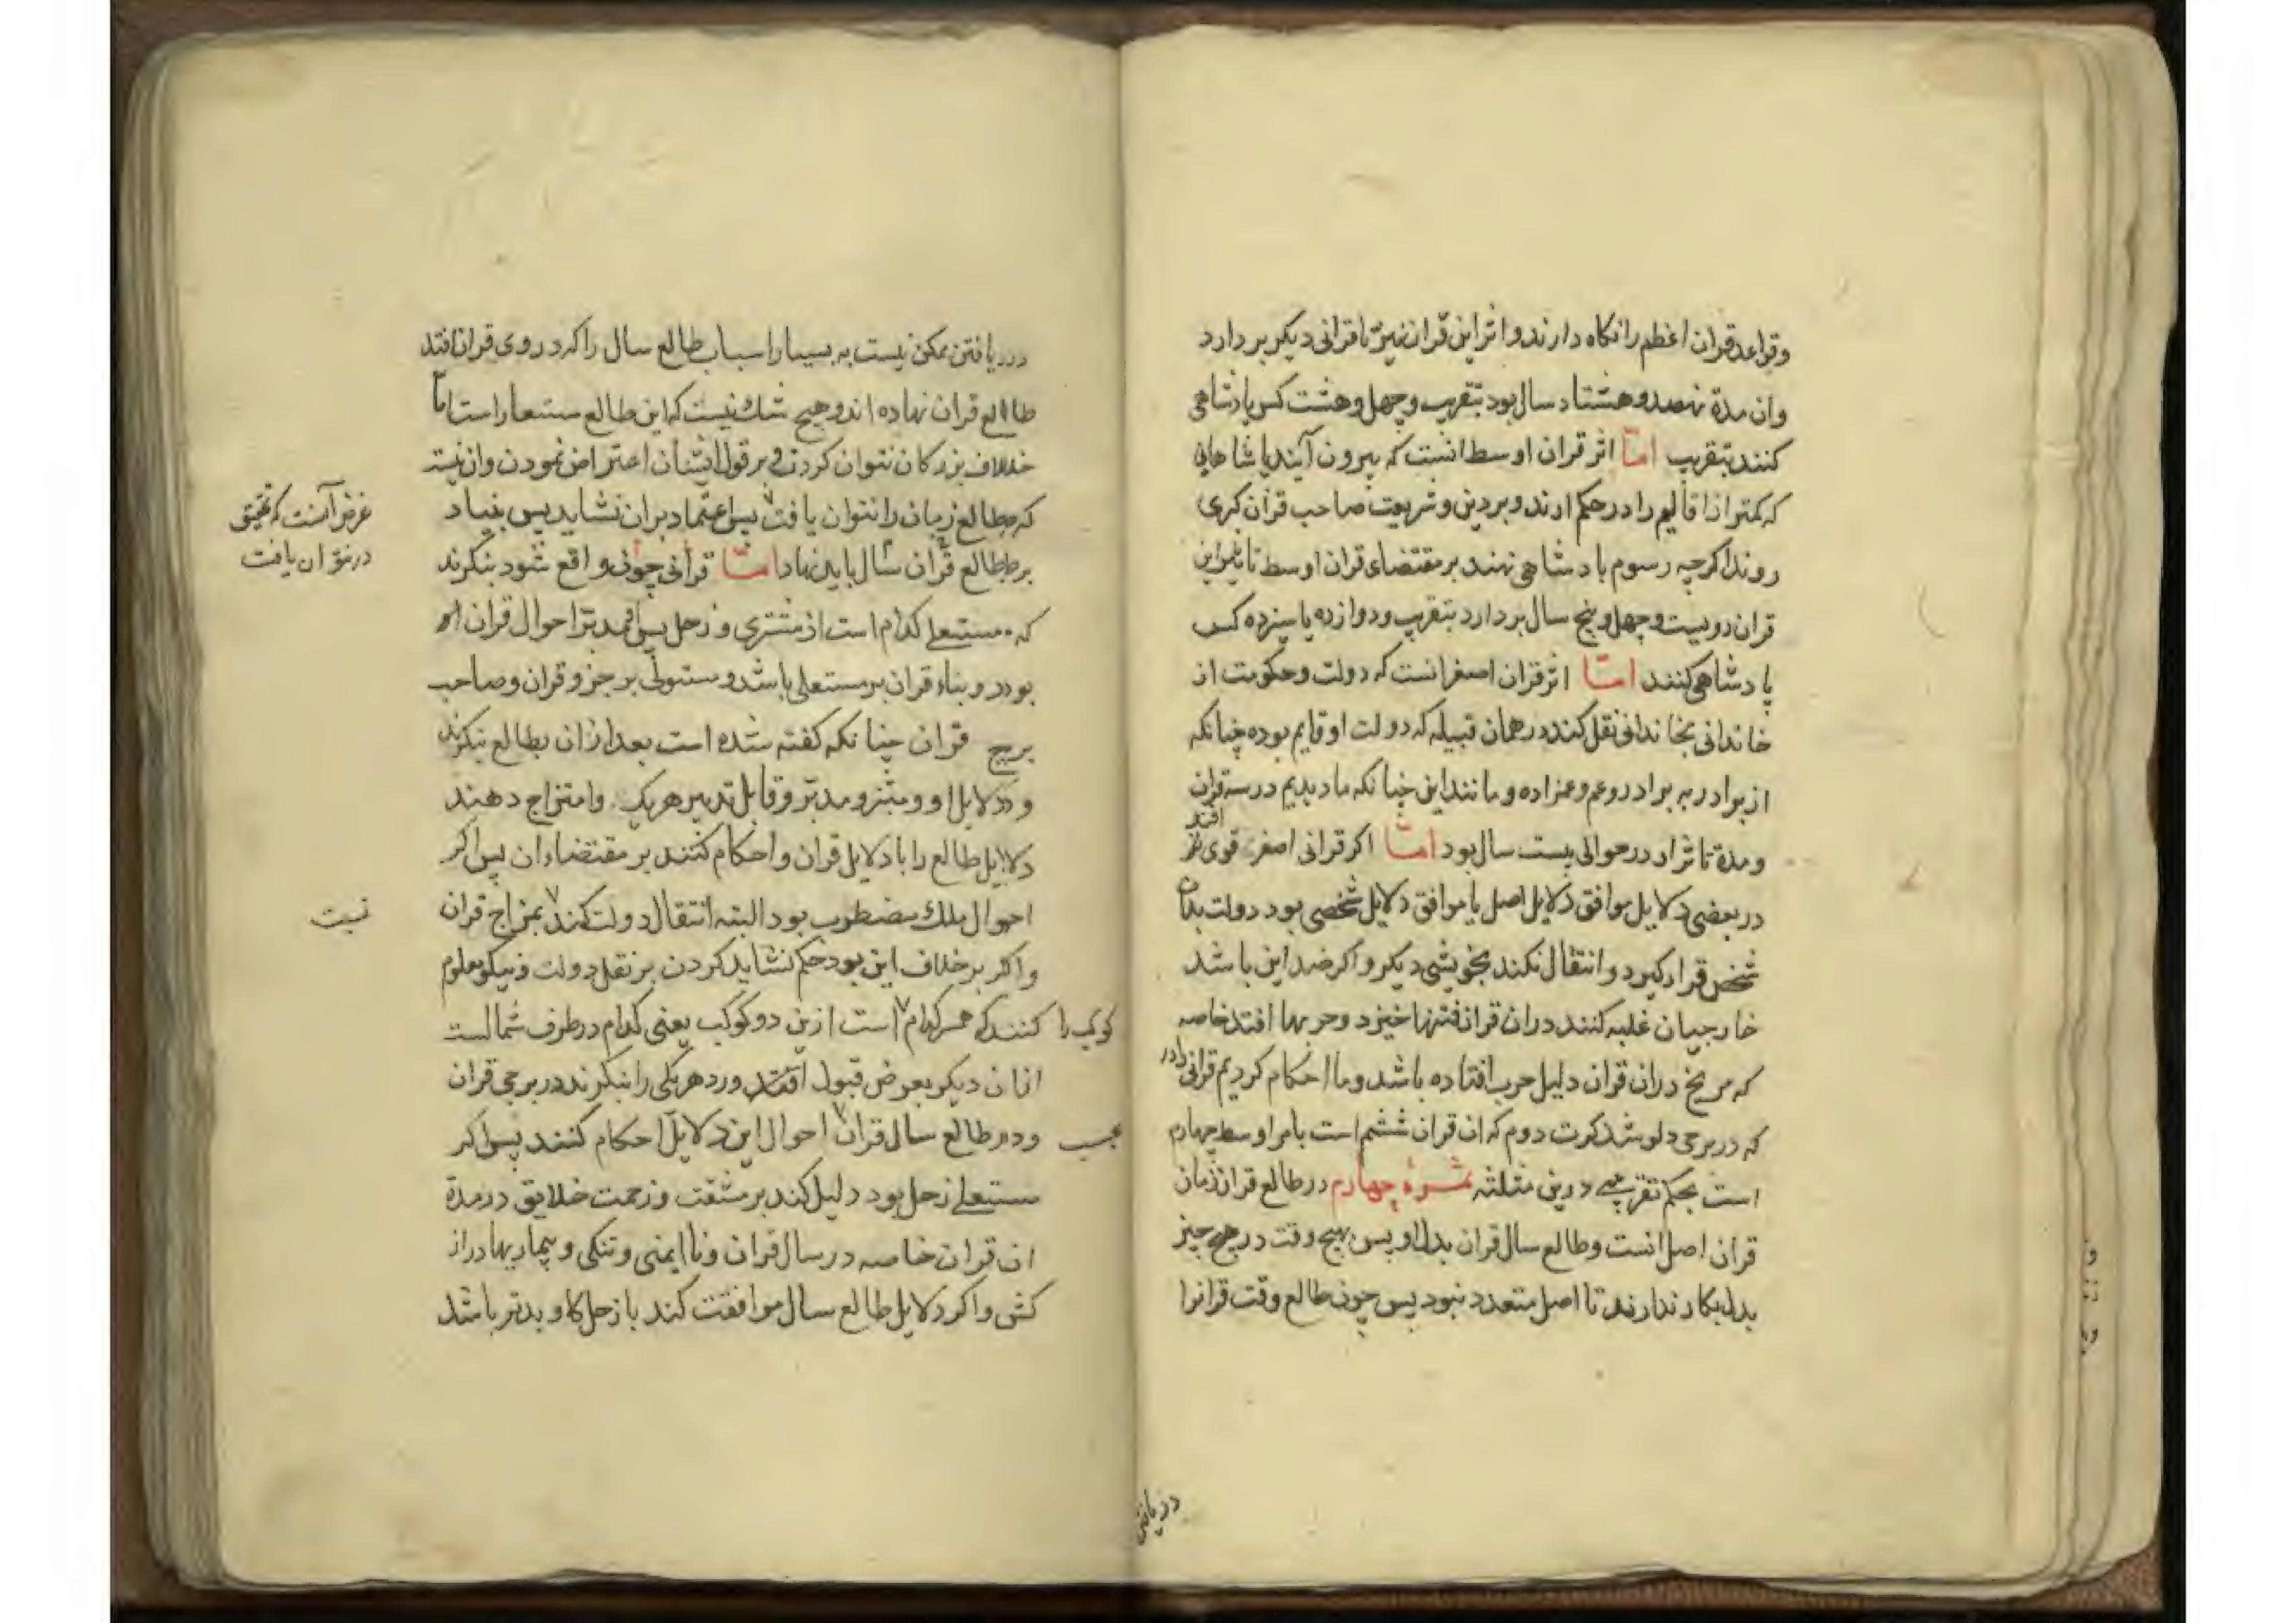 وقواعد قران اعظم را نکاه دارند و اثر این قران نیز تا قرانی دیکر بر دارد
وان مدة نهصد و هشتاد سال بود بتقریب و چهل و هشت کس پادشاهی
کنند بتقریب امّا اثر قران اوسط انست که بیرون آیند پاشاهانی
که کمتر از اقالیم را در حکم ارند و بر دین و شریعت صاحب قران کبری
روند اکرچه رسوم پادشاهی نهند بر مقتضای قران اوسط تاثیر این
قران دویست و چهل و پنج سال بر دارد بتقریب و دوازده یا سیزده کس
پادشاهی کنند امّا اثر قران اصغر انست که دولت و حکومت از
خاندانی بخاندانی نقل کند در همان قبیله که دولت او قایم بوده چنانکه
از برادر به برادر و عم و عمزاده و مانند این چنانکه ما دیدیم در سه قران
ومدة تاثر او در حوالی بیست سال بود امّا اکر قرانی اصغر قوی تر
افتد
در بعضی دلایل موافق دلایل اصل یا موافق دلایل شخصی بود دولت بدان
شخص قرار کیرد و انتقال نکند بخویشی دیکر و اکر ضد این باشد
خارجیان غلبه کنند دران قران فتنها خیزد و حربها افتد خاصه
که مریخ دران قران دلیل حرب افتاده باشد و ما احکام کردیم قرانی را در
که در برجی دلو شد کرت دوم که ان قران ششم است بامر اوسط چهارم
است بحکم تقریبی درین مثلثه ثمرهٔ چهارم در طالع قران زمان
قران اصل انست و طالع سال قران بدل او پس بهیچ وقت در هیچ چیز
بدل بکار ندارند تا اصل متعدد نبود پس چون طالع وقت قرانرا
دریافتن
دریافتن ممکن نیست به بسیار اسباب طالع سال را که در وی قران افتد
طالع قران نهاده اند و هیچ شک نیست که این طالع مستعار است امّا
خلاف بزرکان نتوان کردن و بر قول ایشان اعتراض نمودن وان نیست
که طالع زمان را نتوان یافت پس اعتماد بران نشاید پس بنیاد
غرض آنست که تحقیق
در نتوان یافت
بر طالع قران سال باید نهاد امّا قرانی چون واقع شود بنکرند
که مستعلی کدام است از مشتری و زحل پس مدبّر احوال قران او
بود و بناء قران بر مستعلی باشد و مستولی بر جزو قران و صاحب
برج قران چنانکه کفته شده است بعد ازان بطالع بنکرند
و دلایل او و مبتز و مدبّر و قابل تدبیر هریک و امتزاج دهند
دلایل طالع را با دلایل قران و احکام کنند بر مقتضاء ان پس اکر
احوال ملک مضطرب بود البته انتقال دولت کند بمزاج قران
نیست
و اکر بر خلاف این بود حکم نشاید کردن بر نقل دولت و نیکو معلوم
کنند که هر کدام است ازین دو کوکب یعنی کدام در طرف شمالست
کوکب را
ازان دیکر بعرض قبول افتد و رد هریکی را بنکرند در برجی قران
ودر طالع سال قران احوال این دلایل احکام کنند پس اکر
مستعلی زحل بود دلیل کند بر مشقت و زحمت خلایق در مدة
ان قران خاصه در سال قران و ناایمنی و تنکی و بیماریها دراز
کش و اکر دلایل طالع سال موافقت کند با زحل کار بدتر باشد